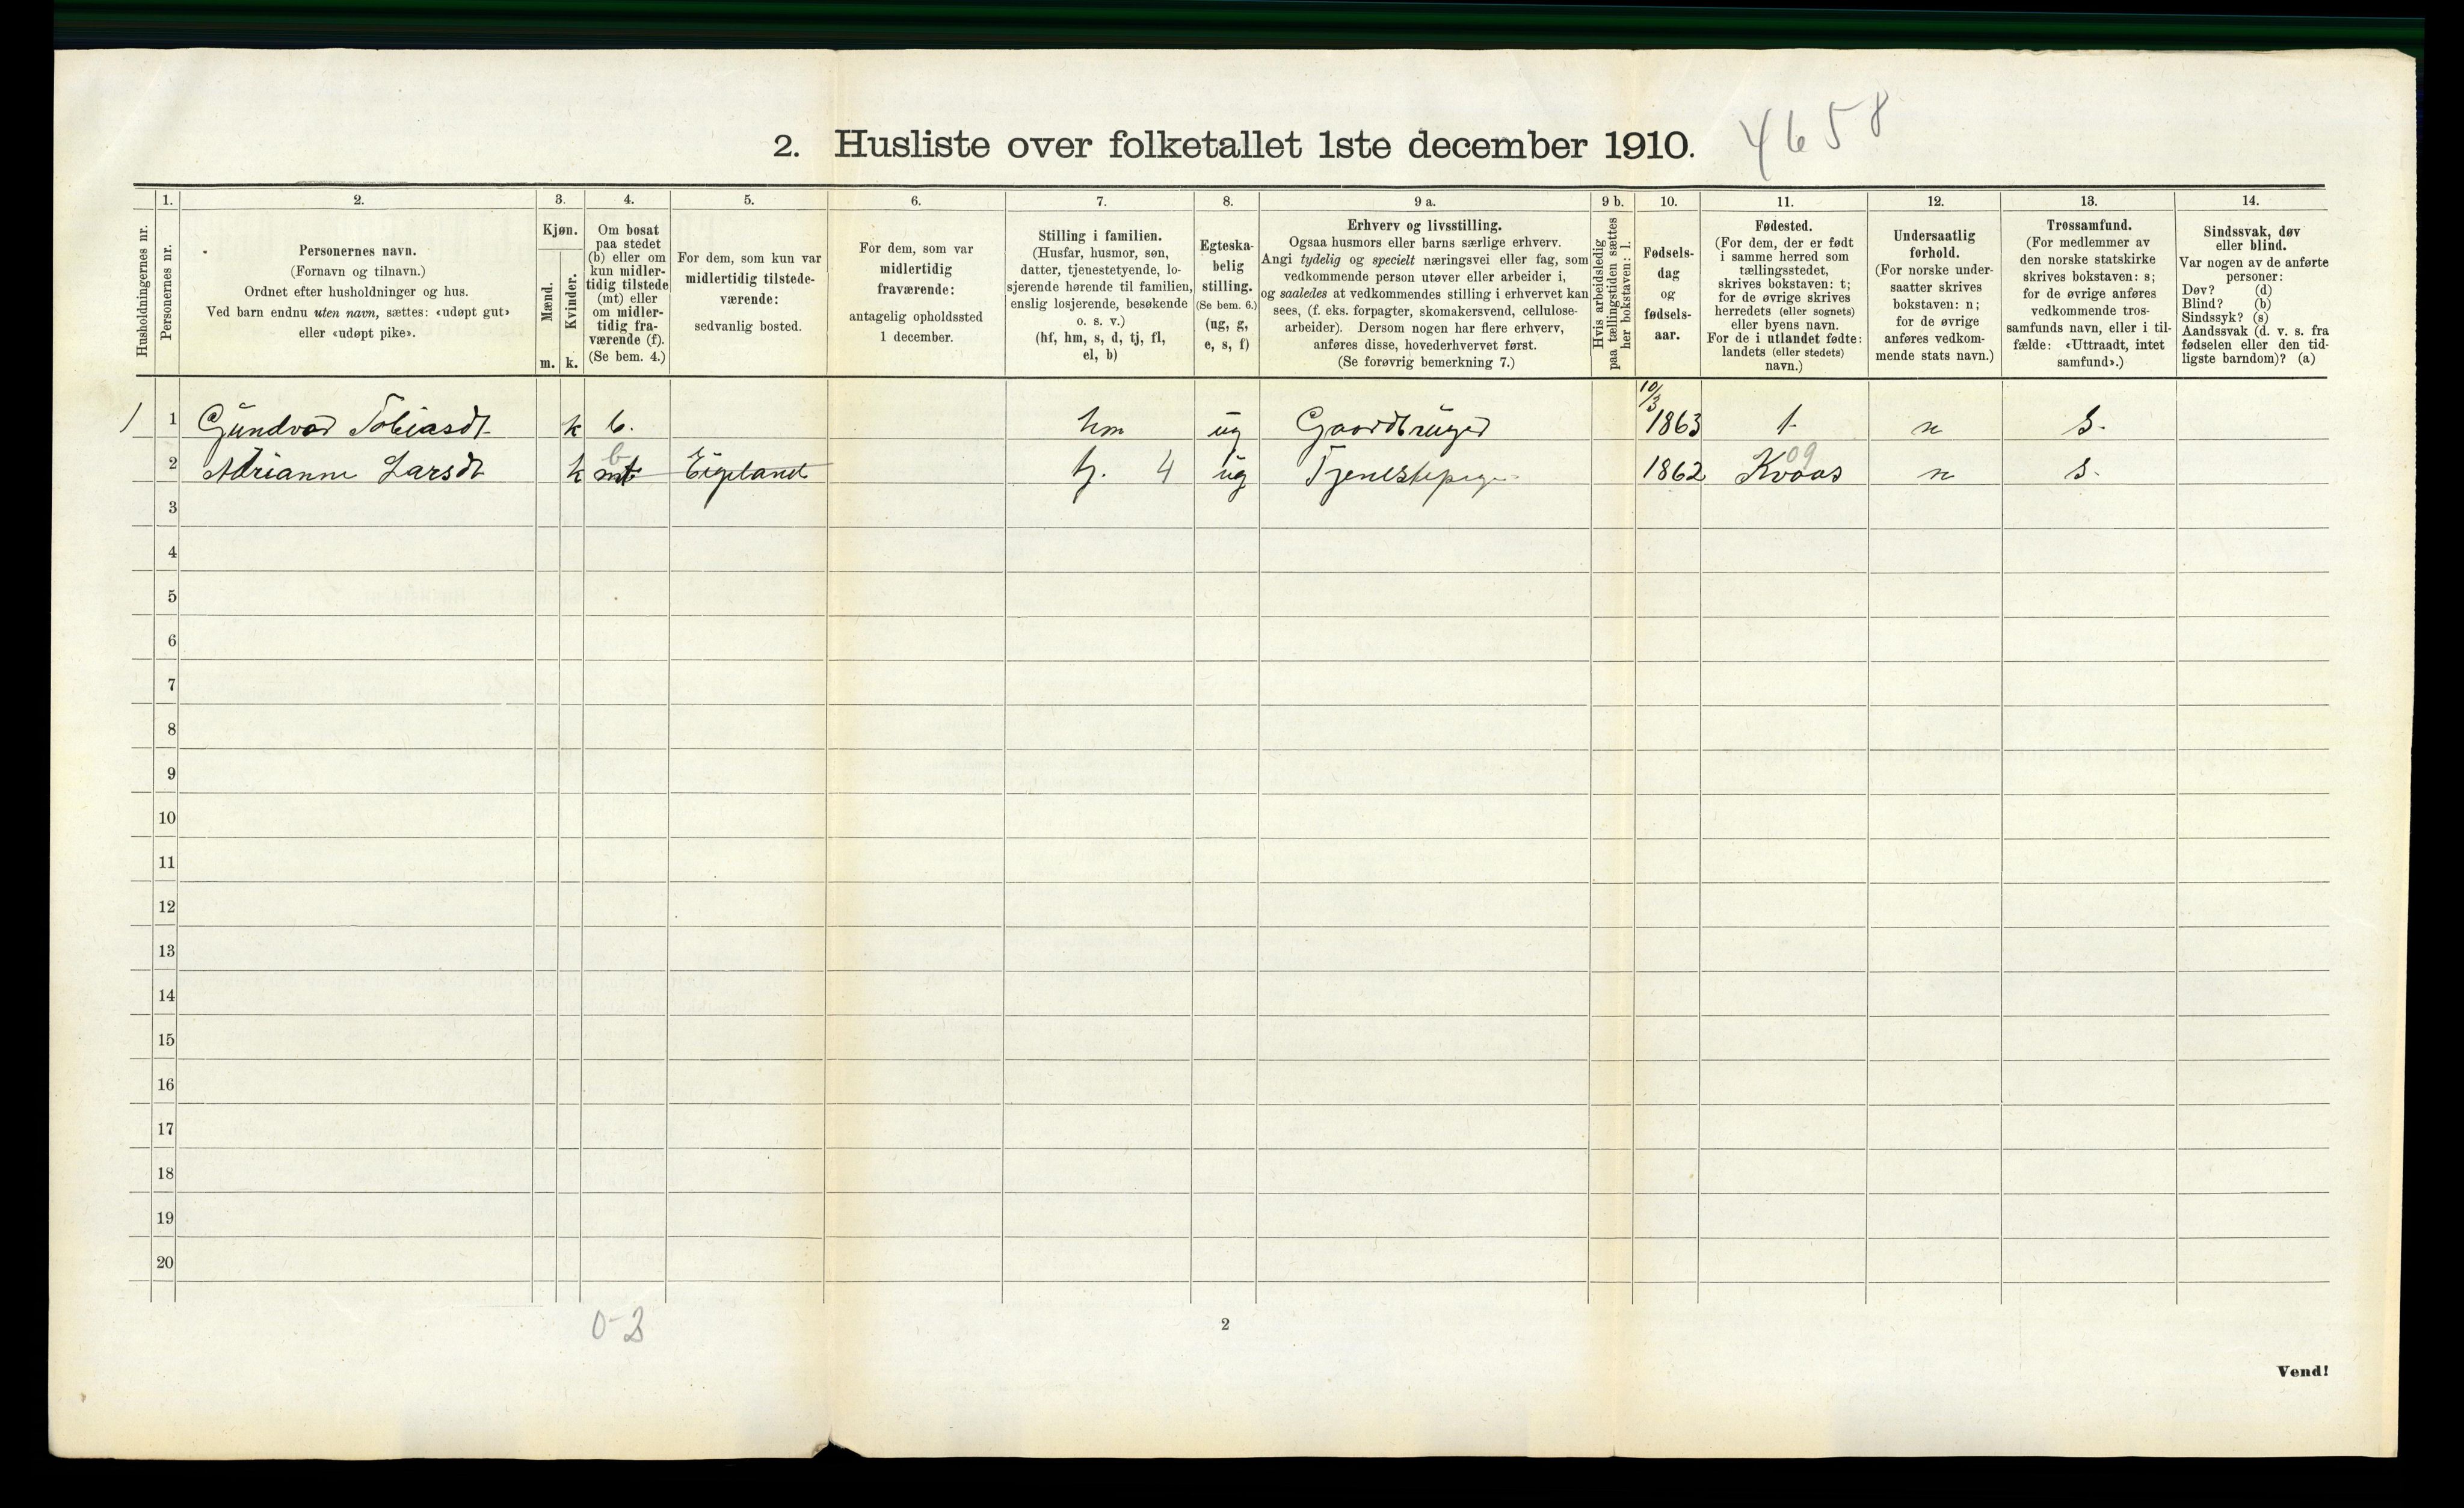 2. Husliste over folketallet 1ste december 1910. 4658
Husholdningernes nr.
1.
Personernes nr.
2.
Personernes navn.
(Fornavn og tilnavn.)
Ordnet efter husholdninger og hus.
Ved barn endnu uten navn, sættes: «udøpt gut»
eller «udøpt pike».
3.
Kjøn.
Mænd.
m.
Kvinder.
k.
4.
Om bosat
paa stedet
(b) eller om
kun midler-
tidig tilstede
(mt) eller
om midler-
tidig fra-
værende (f).
(Se bem. 4.)
5.
For dem, som kun var
midlertidig tilstede-
værende:
sedvanlig bosted.
6.
For dem, som var
midlertidig
fraværende:
antagelig opholdssted
1 december.
7.
Stilling i familien.
(Husfar, husmor, søn,
datter, tjenestetyende, lo-
sjerende hørende til familien,
enslig losjerende, besøkende
o. s. v.)
(hf, hm, s, d, tj, fl,
el, b)
8.
Egteska-
belig
stilling.
(Se bem. 6.)
(ug, g,
e, s, f)
9 a.
Erhverv og livsstilling.
Ogsaa husmors eller barns særlige erhverv.
Angi tydelig og specielt næringsvei eller fag, som
vedkommende person utøver eller arbeider i,
og saaledes at vedkommendes stilling i erhvervet kan
sees, (f. eks. forpagter, skomakersvend, cellulose-
arbeider). Dersom nogen har flere erhverv,
anføres disse, hovederhvervet først.
(Se forøvrig bemerkning 7.)
9 b.
Hvis arbeidsledig
paa tællingstiden sættes
her bokstaven: l.
10.
Fødsels-
dag
og
fødsels-
aar.
11.
Fødested.
(For dem, der er født
i samme herred som
tællingsstedet,
skrives bokstaven: t;
for de øvrige skrives
herredets (eller sognets)
eller byens navn.
For de i utlandet fødte:
landets (eller stedets)
navn.)
12.
Undersaatlig
forhold.
(For norske under-
saatter skrives
bokstaven: n;
for de øvrige
anføres vedkom-
mende stats navn.)
13.
Trossamfund.
(For medlemmer av
den norske statskirke
skrives bokstaven: s;
for de øvrige anføres
vedkommende tros-
samfunds navn, eller i til-
fælde: «Uttraadt, intet
samfund».)
14.
Sindssvak, døv
eller blind.
Var nogen av de anførte
personer:
Døv? (d)
Blind? (b)
Sindssyk? (s)
Aandssvak (d. v. s. fra
fødselen eller den tid-
ligste barndom)? (a)
1 1 Gundvor Tobiasdt k b. hm ug Gaardbruger 10/3 1863 t n s.
2 Adrianne Larsdt k mt b Eigeland tj. 4 ug Tjenestepige 1862 Kvaas 09 n s.
3
4
5
6
7
8
9
10
11
12
13
14
15
16
17
18
19
20
0-2
2
Vend!